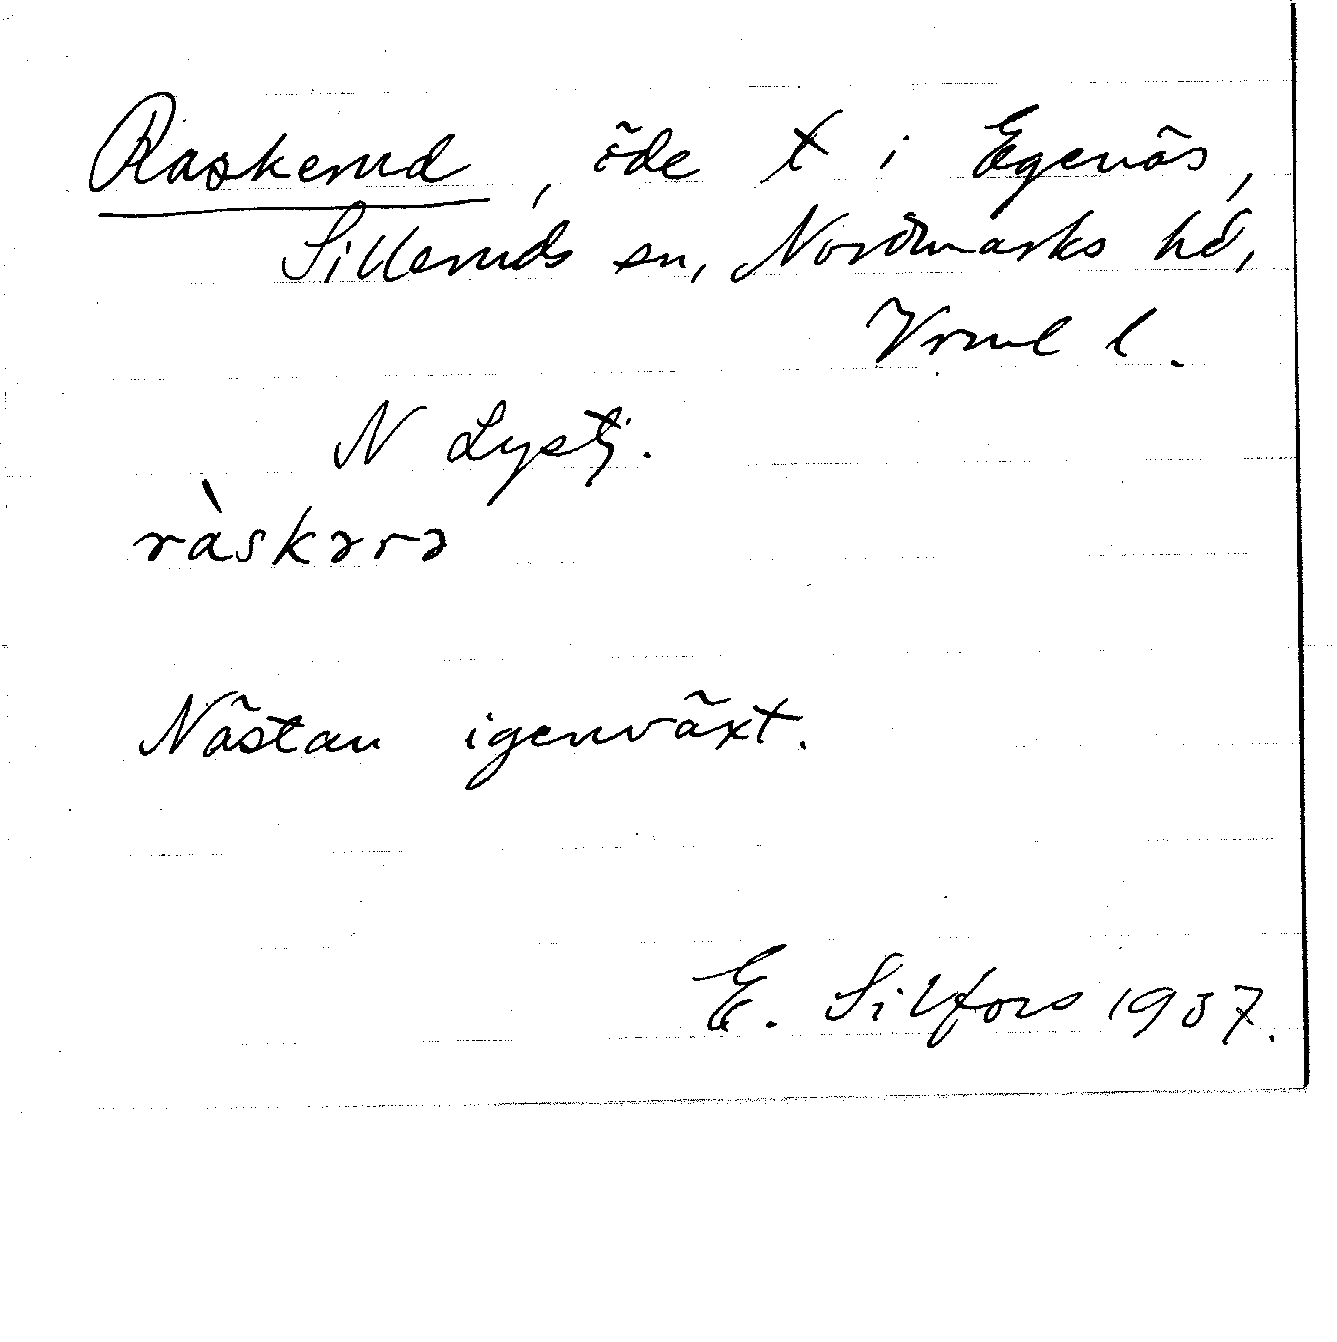 Raskerud, öde t i Egenäs,
Silleruds sn, Nordmarks hd,
Vrml l.
N Lystj.
ràskərə
Nästan igenväxt.
E. Silfors 1937.